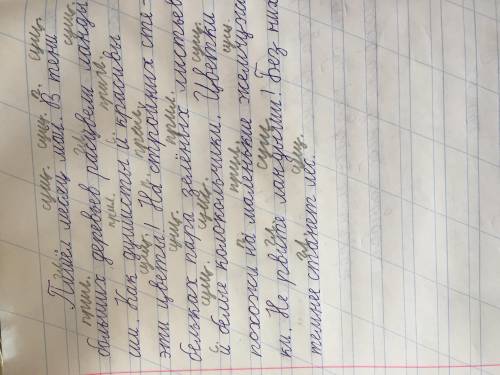 сущ. сущ. сущ.
месяц май. В тени
прил. сущ.
больших деревьев расцвели ланды-
прил. прил.
ши. Как душисты и красивы
сущ. прил.
эти цветы! На стройных сте-
сущ. прил.
бельках пара зелёных листьев
сущ. сущ.
и белые колокольчики. Цветки
прил. сущ.
похожи на маленькие жемчужин-
сущ.
ки. Не рвите ландыши! Без них
сущ.
темнее станет лес.